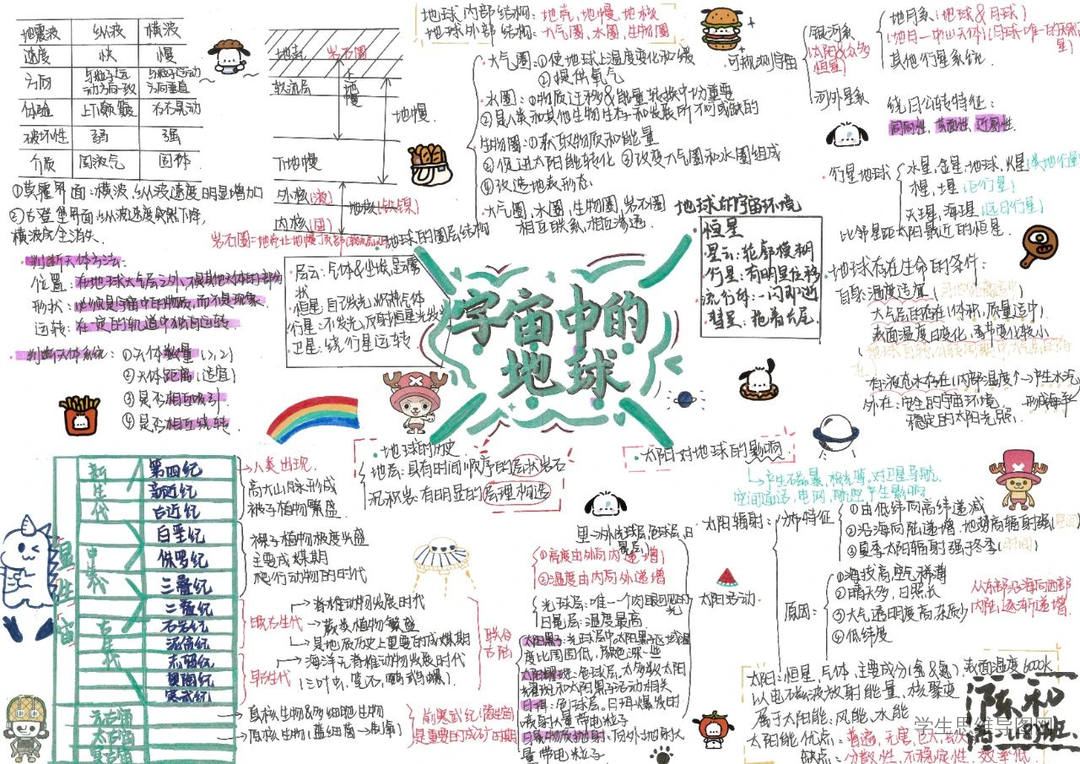 地震波 纵波 横波
速度 快 慢
方向
体验 上下颠簸 左右晃动
破坏性 弱 强
介质 固液气 固体
①莫霍界面：横波，纵波速度明显增加
②古登堡界面：纵波速度突然下降，
横波完全消失
地壳 岩石圈
软流层
上地幔
地幔
下地幔
外核(液)
内核(固)
地核
地球的圈层结构
地球内部结构：地壳，地幔，地核
地球外部结构：大气圈，水圈，生物圈
大气圈：①使地球上温度变化和缓
②提供氧气
水圈：①物质迁移&能量转换中均重要
②是人类和其他生物生存和发展所不可或缺的
生物圈：①获取物质和能量
②促进太阳能转化 ③改变大气圈和水圈组成
④改造地表形态
大气圈，水圈，生物圈，岩石圈
相互联系，相互渗透
地球的宇宙环境
可观测宇宙
银河系
河外星系
地月系(地球&月球)
其他行星系统
绕日公转特征：
同向性，共面性，近圆性
行星地球
水星，金星，地球，火星(类地行星)
木星，土星(巨行星)
天王星，海王星(远日行星)
比邻星距太阳最近的恒星
地球存在生命的条件：
自身：温度适宜
大气层的存在(体积，质量适中)
外在：安全的宇宙环境
稳定的太阳光照
恒星
星云：轮廓模糊
行星：有明显位移
流行体：一闪即逝
彗星：拖着长尾
判断天体方法：
位置：在地球大气层之外，不是其他天体的部分
形状：必须是宇宙中的物质，而不是现象
运转：在一定的轨道中独自运转
判断天体系统：①天体数量(≥2)
②天体距离(适宜)
③是否相互吸引
④是否相互绕转
层云：气体&尘埃，呈雾
状
恒星：自己发光，炽热气体
行星：不发光，反射恒星光
卫星：绕行星运转
宇宙中的
地球
地球的历史
地层：具有时间顺序的层状岩石
沉积岩：有明显的层理构造
显生宙
新生代
中生代
古生代
第四纪
新近纪
古近纪
白垩纪
侏罗纪
三叠纪
二叠纪
石炭纪
泥盆纪
志留纪
奥陶纪
寒武纪
元古宙
太古宙
冥古宙
人类出现
高大山脉形成
被子植物繁盛
裸子植物极度兴盛
主要成煤期
爬行动物的时代
晚古生代
脊椎动物发展时代
蕨类植物繁盛
是地质历史上重要的成煤期
早古生代
海洋无脊椎动物发展时代
(三叶虫，笔石，鹦鹉螺)
联合古陆
真核生物&多细胞生物
原核生物(蓝细菌→制氧)
是重要的成矿时期
太阳对地球的影响
产生磁暴，极光等，对卫星导航，
空间通信，电网，航空产生影响
太阳辐射：
分布特征
①由低纬向高纬递减
②沿海向内陆递增，地势高辐射强
③夏季太阳辐射强于冬季(时间)
原因：
①海拔高，空气稀薄
②晴天多，日照长
③大气透明度高，灰尘少
④低纬度
从东部沿海向西部
内陆逐渐递增
太阳活动
里→外：光球层，色球层，日
冕层
①高度由外向内递增
②温度由内向外递增
光球层：唯一一个肉眼可见的光
日冕层：温度最高
太阳黑子：光球层中太阳黑子区域温
度比周围低，颜色深一些
太阳：恒星，气体，主要成分(氢&氦)，表面温度6000K
以电磁波放射能量，核聚变
属于太阳能：风能，水能
太阳能优点：普遍，无害，巨大，长久
缺点：分散性，不稳定性，效率低
学生思维导图网